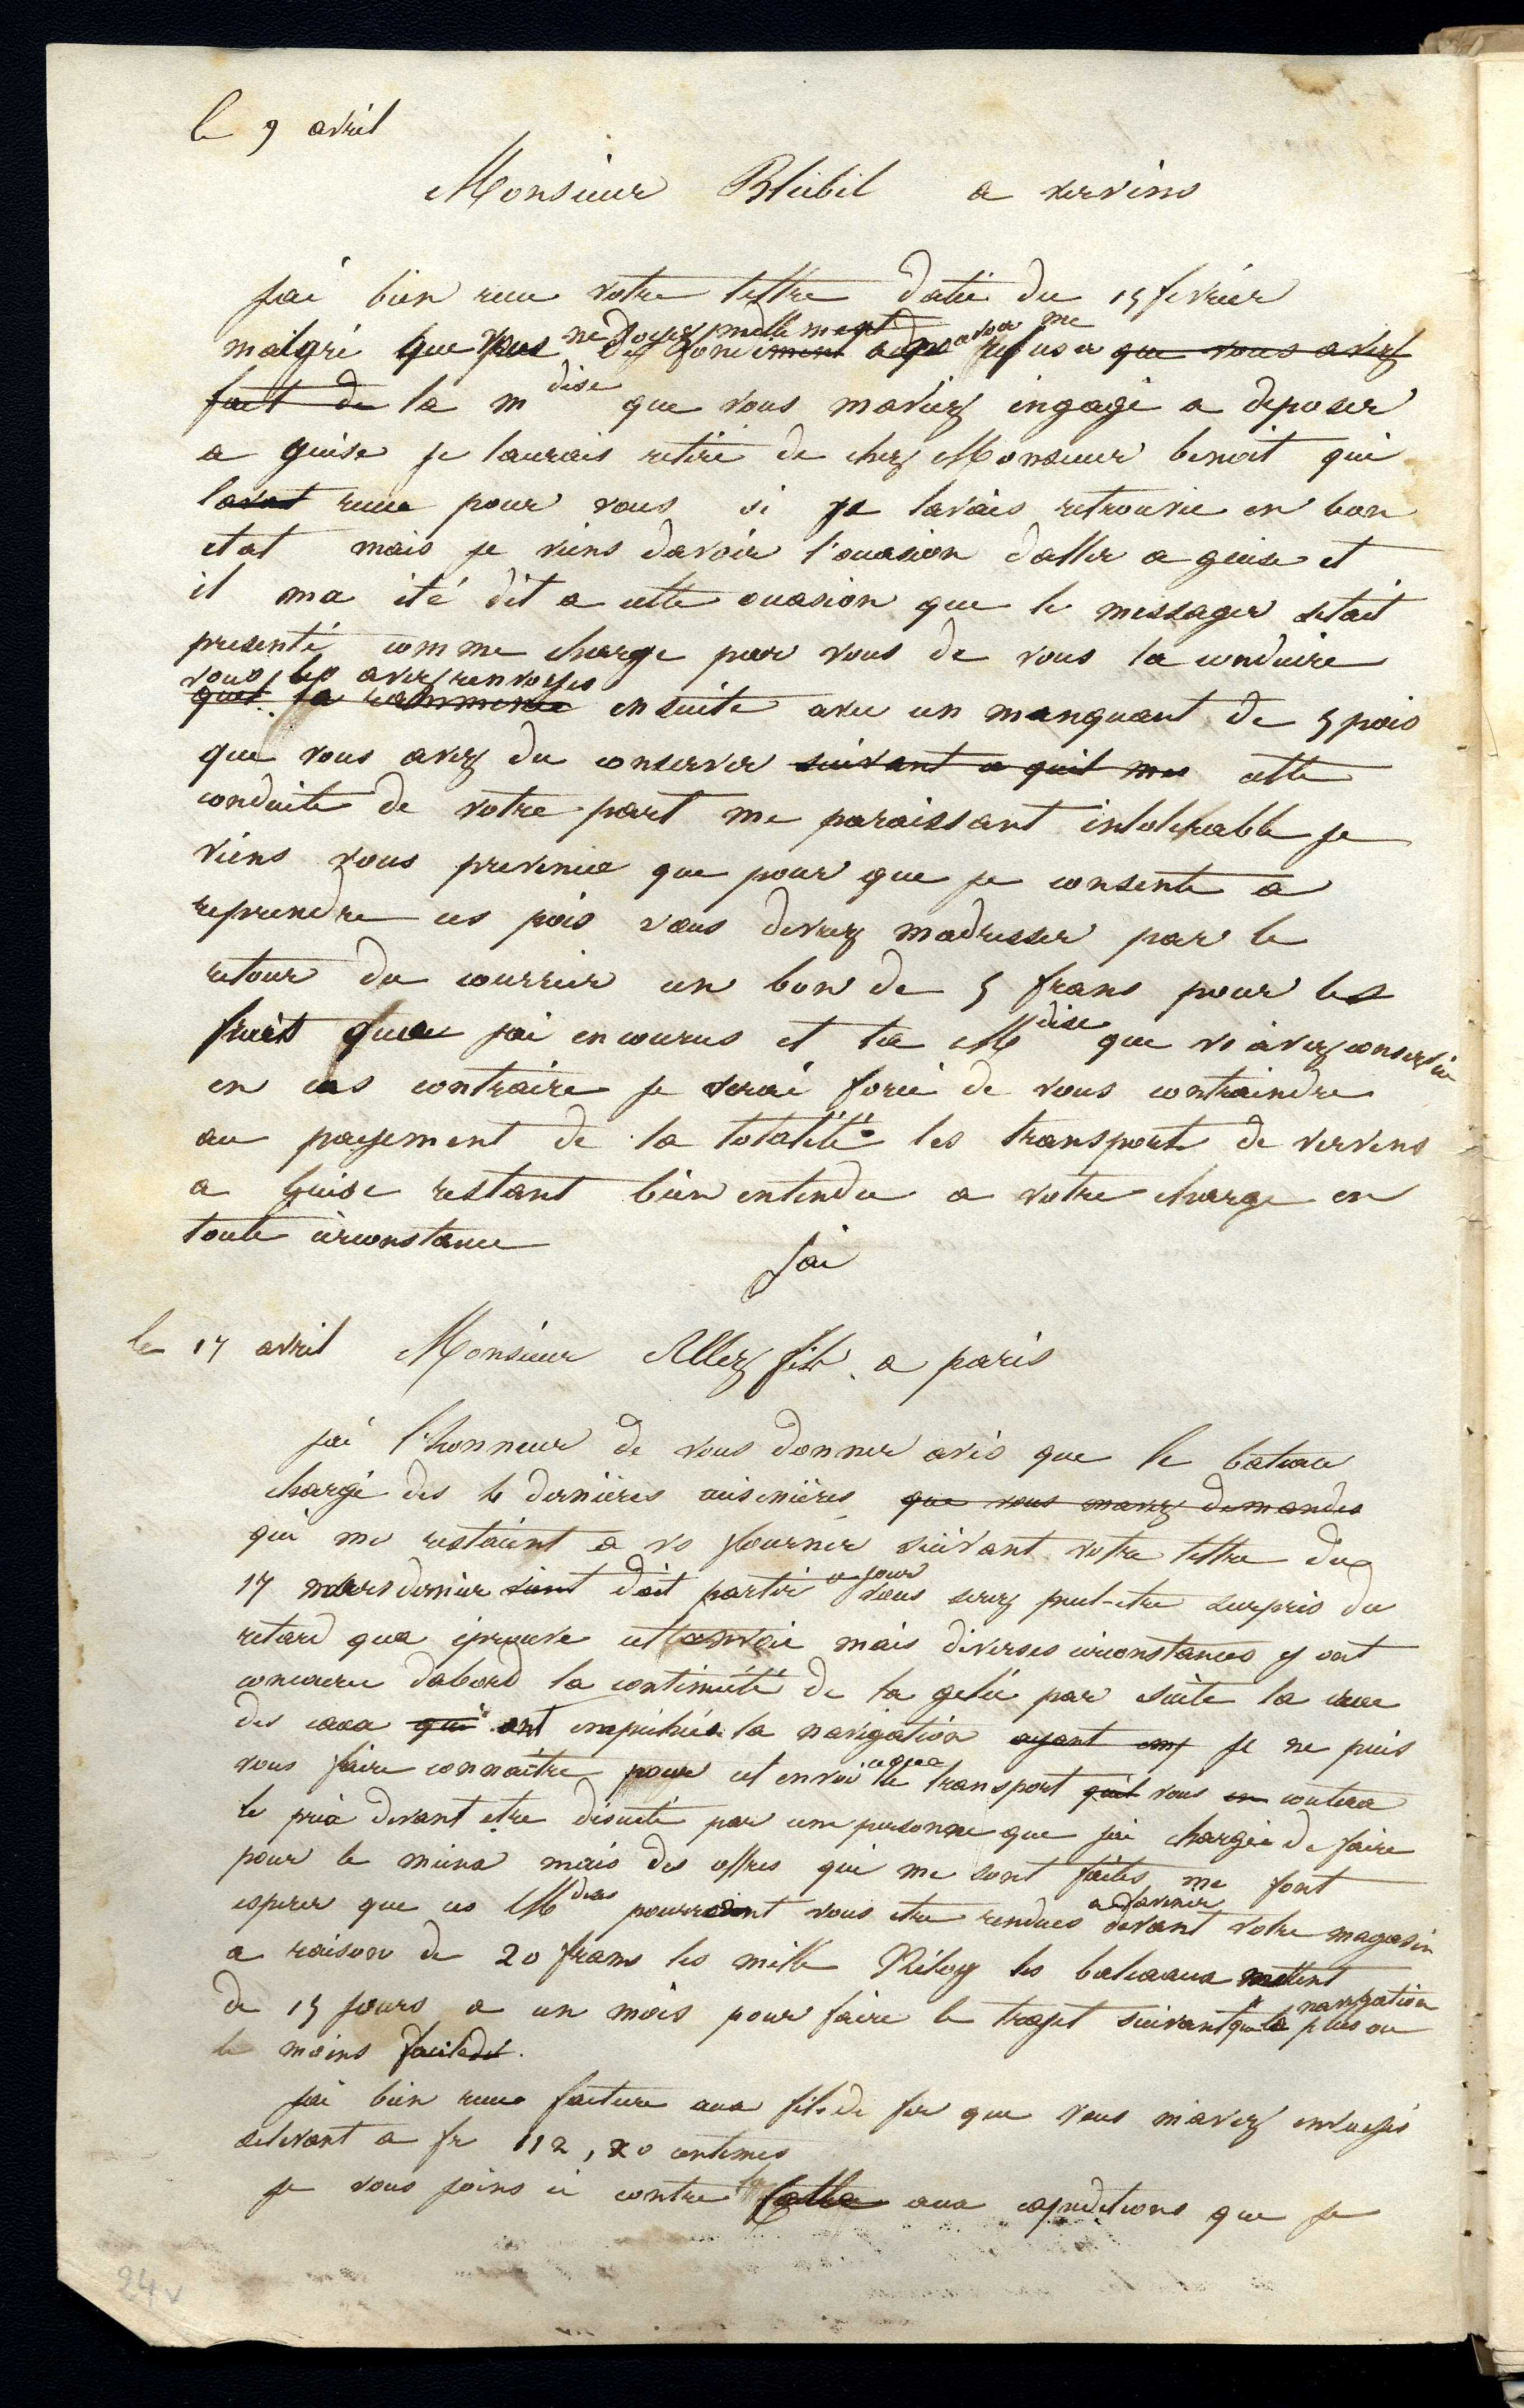 le 9 avril
Monsieur Bleibel a vervins
jai bien reuu votre lettre datée du 15 fevrier
ne soyez nullement me
malgré que vous refuser que vous avez
fait de la m dise que vous maviez engagé a deposer
a guise je laurais retiré de chez Monsieur benoit qui
lavait reuue pour vous si je lavais retrouvée en bon
etat mais je viens davoir l'ouasion daller a guise et
il ma été dit a cette ouasion que le messager setait
presenté comme charge par vous de vous la conduire
vous les avez renvoyés
quil la ramenée ensuite avec un manquant de 5 pois
que vous avez du conserver suivant ce quil mes cette
conduite de votre part me paraissant intolerable je
viens vous prevenir que pour que je consente a
reprendre ces pois vous devrez madresser par le
retour du courrier un bon de 5 frans pour les
frais que jai encourus et la M dise que vs avez conservée
en cas contraire je serai forcé de vous contraindre
au payement de la totalité les transport de vervins
a Guise restant bien entendu a votre charge en
toute circonstance
jai
le 17 avril Monsieur Allez fils a paris
jai l'honneur de vous donner avis que le bateau
chargé des 4 dernières cuisinières que vous mavez demandés
qui me restaient a vs fournir suivant votre lettre du
17 mars dernier vient doit partir ce jour vous serez peut-etre surpris du
retard qua éprouvé cet envoie mais diverses circonstances y ont
concouru dabord la continuité de la gelée par suite la crue
des eaux qui ont empéchés la navigation ayant emp je ne puis
vous faire connaitre pour cet envoi ce que le transport quil vous en coutera
le prix devant etre discuté par une personne que jai chargée de faire
pour le mieux mais des offres qui me sont faites me font
esperer que ces M dises pourraient vous etre rendues a devant votre magasin
a raison de 20 frans les mille Kilog les bateaux mettent
de 15 jours a un mois pour faire le trajet suivant que la navigation plus ou
le moins facile
jai bien reuu facture aux fils de fer que vous m'avez envoyés
selevant a fr 112,20 centimes
je vous joins ci contre la aux expeditions que je
24 v